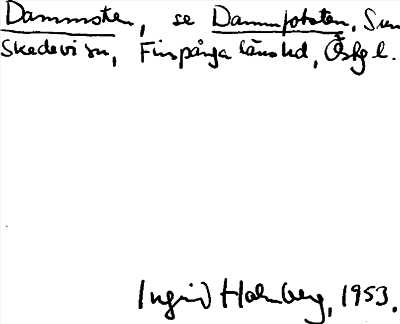 Dammsten, se Dammpotaten, Sun
Skedevi sn, Finspånga länshd, Östg l.
Ingrid Holmberg, 1953.